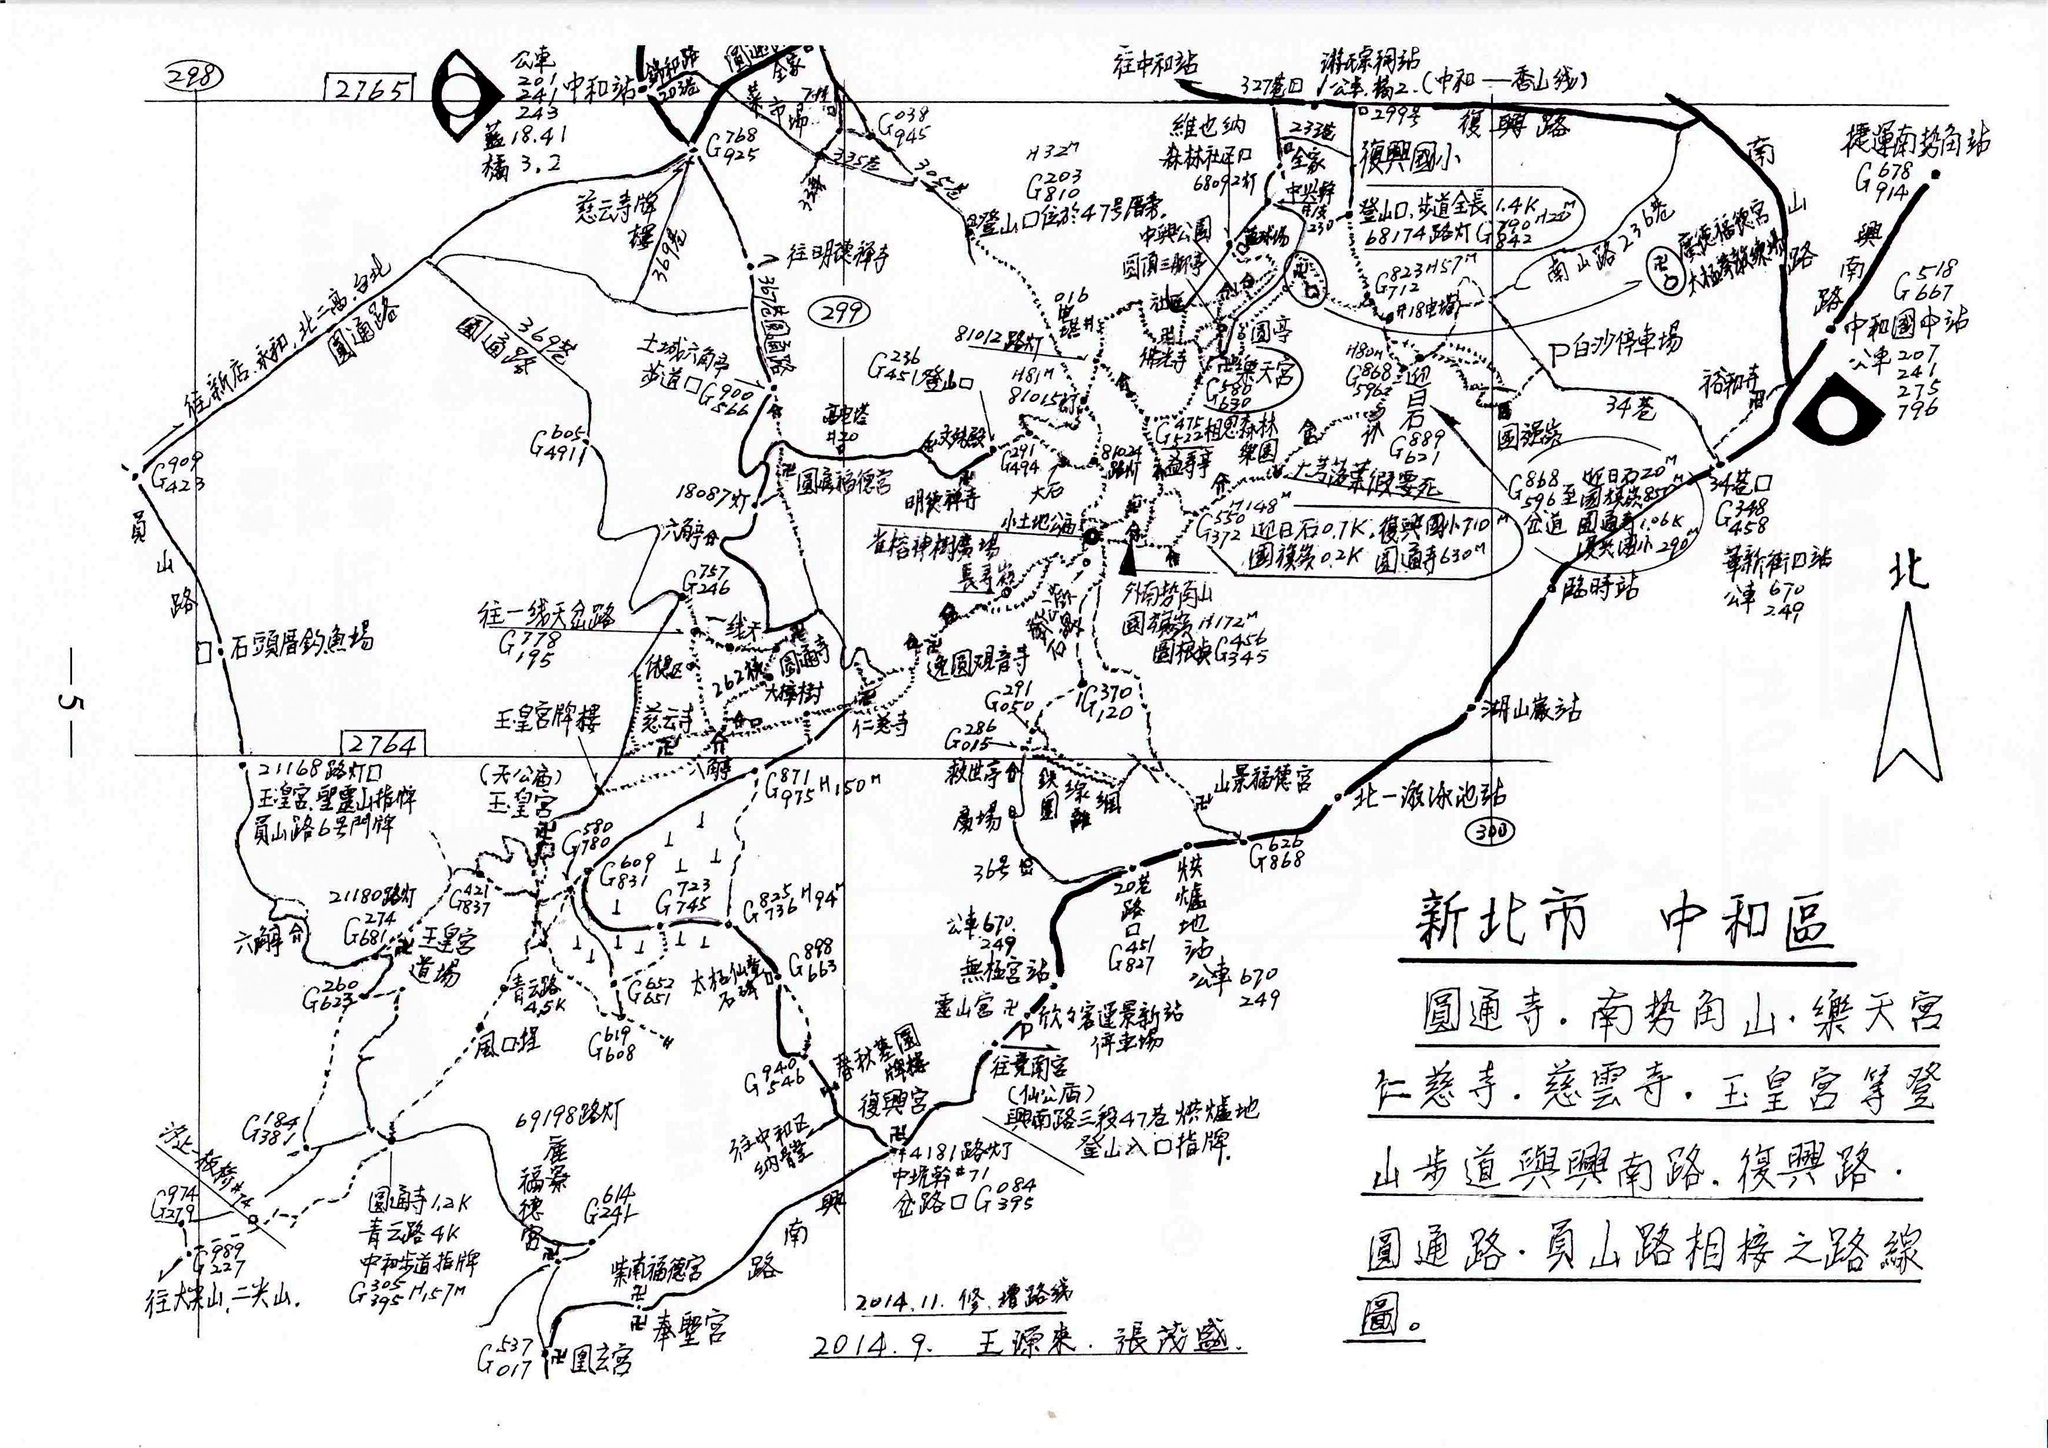 298
2765
公車
201
241
243
藍18.41
橘3.2
中和站
錦和路
203巷
全家
菜市場
G768
925
G038
945
335巷
305巷
慈云寺牌樓
369巷
往明德禪寺
367巷圓通路
299
往新店.永和.北二高.台北
圓通路
369巷
圓通路
土城六角亭
步道口G900
566
G605
491
G909
423
員山路
石頭厝釣魚場
高电塔
#20
G236
451登山口
明德禪寺
圓廣福德宮
18087灯
六角亭
G757
246
往一线天岔路
G778
195
一线天
圓通寺
大樟樹
262
慈云寺
玉皇宮牌樓
仁慈寺
八角亭
往中和站
327巷口
游氏宗祠站
公車.橘2.(中和—香山线)
299号
復興路
維也納
森林社区口
68092灯
233巷
全家
復興國小
H32M
G203
810
登山口位於47号厝旁.
中興公園
圓頂三腳亭
籃球場
登山口.步道全長1.4K
68174路灯G790 H20M
842
G823 H57M
712
#18电塔
南山路236巷
廣德福德宮
南山路
捷運南势角站
G678
914
興南路
G518
667
中和國中站
公車207
241
275
796
P白沙停車場
裕和寺
34巷
34巷口
G348
458
華新街口站
公車670
249
臨時站
湖山巖站
北一游泳池站
300
81012路灯
H81M
81015灯
佛光寺
圆亭
樂天宮
G580
630
H80M
G868
596
迎白石
G889
621
G475
522相思森林
樂園
益寿亭
81024
路灯
G291
494
大石
小土地公庙
雀榕神樹廣場
長寿嶺
大菩萨葉假要死
H148M
G550
372
迎日石0.7K.復興國小710M
國旗嶺0.2K 圓通寺630M
G868
596至
岔道
迎日石20M
國旗嶺850M
圓通寺1.06K
復興國小290M
外南势角山
國旗嶺H172M
圖根點G456
345
逸圓观音寺
G291
050
G286
015
G370
120
救世亭
鉄線網
圍離
廣場
36号
山景福德宮
G626
868
烘爐地站
公車670
249
20巷路口
G451
827
公車670.
249
無極宮站
靈山宮
P
欣欣客運景新站
停車場
往竟南宮
(仙公庙)
興南路三段47巷烘爐地
登山入口指牌.
北
2764
21168路灯口
玉皇宮.聖靈山指牌
員山路6号門牌
(天公庙)
玉皇宮
G871
975 H150M
G580
780
G609
831
G723
745
G825
736 H94M
G421
837
21180路灯
G274
681
六角亭
玉皇宮
道場
G260
623
青云路
4.5K
風口埕
G652
651
G619
608
太极仙童
石碑
G898
663
G940
546
春秋墓園
牌樓
復興宮
往中和区
納骨堂
4181路灯
中坑幹#71
岔路口G084
395
G184
381
G974
279
G989
227
往大尖山.二尖山.
圓通寺1.2K
青云路4K
中和步道指牌
G305
395 H157M
69198路灯
G614
241
紫南福德宮
奉聖宮
G537
017
凰玄宮
興南路
2014.11.修.增路线
2014.9. 王源來.張茂盛.
新北市 中和區
圓通寺.南势角山.樂天宮
仁慈寺.慈雲寺.玉皇宮等登
山步道與興南路.復興路.
圓通路.員山路相接之路線
圖。
—5—